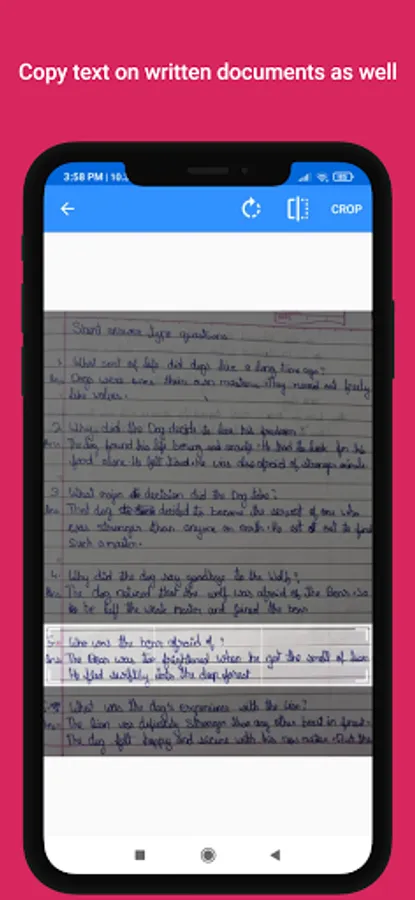 Copy text on written documents as well
3:58 PM | 10.
CROP
Short answer type questions
1. What sort of life did dogs live a long time ago?
Ans Dogs were their own masters. They roamed freely
like wolves.
2. Why did the Dog decide to lose his freedom?
Ans The dog found his life boring and He had to look for his
food alone He felt tired. He was also afraid of stronger animals
3. What major decision did the Dog take?
Ans That dog decided to become the servant of one who
was stronger than anyone on earth. He set out to find
such a master.
4. Why did the dog say goodbye to the Wolf?
Ans The dog noticed that the wolf was afraid of the Bear. So
he left the master and joined the bear
5. Who was the bear afraid of?
Ans The Bear was too frightened when he got the smell of lion
He fled swiftly into the deep forest
What was the dog's experience with the Lion?
The lion was definitely stronger than any other beast in forest.
The dog felt happy and secure with his new master. But the